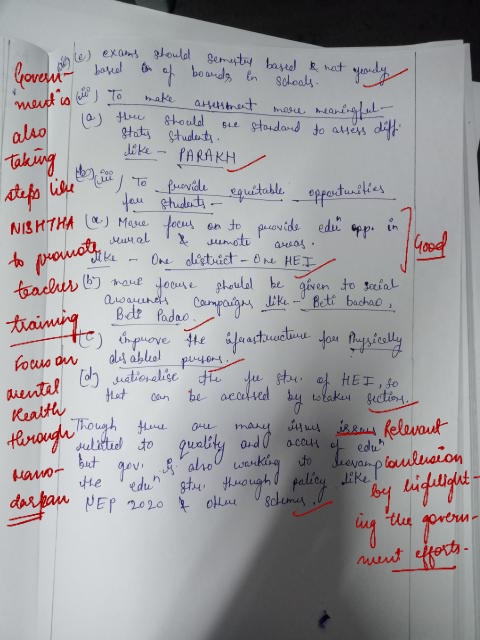 (c) exams should semester based & not yearly
based on of boards in schools.
(ii) To make assessment more meaningful-
(a) there should one standard to assess diff.
States students.
like - PARAKH
(iii) To Provide equitable opportunities
for students-
(a) More focus on to provide eduⁿ opp. in
rural & remote areas.
like - One district - One HEI
(b) more focuse should be given to social
awareness campaigns like - Beti bachao,
Beti Padao.
(c) improve the infrastructure for Physically
disabled persons.
(d) rationalise the fee str. of HEI, so
that can be accessed by weaker section.
Though there are many issues
related to quality and access of eduⁿ
but gov. is also working to revamp
the eduⁿ str. through policy like
NEP 2020 & other schemes.
Govern-
ment is
also
taking
steps like
NISHTHA
to promote
teacher
training
Focus on
mental
health
through
mano-
darpan
Good
issues Relevant
conclusion
by highlight-
ing the govern-
ment efforts.